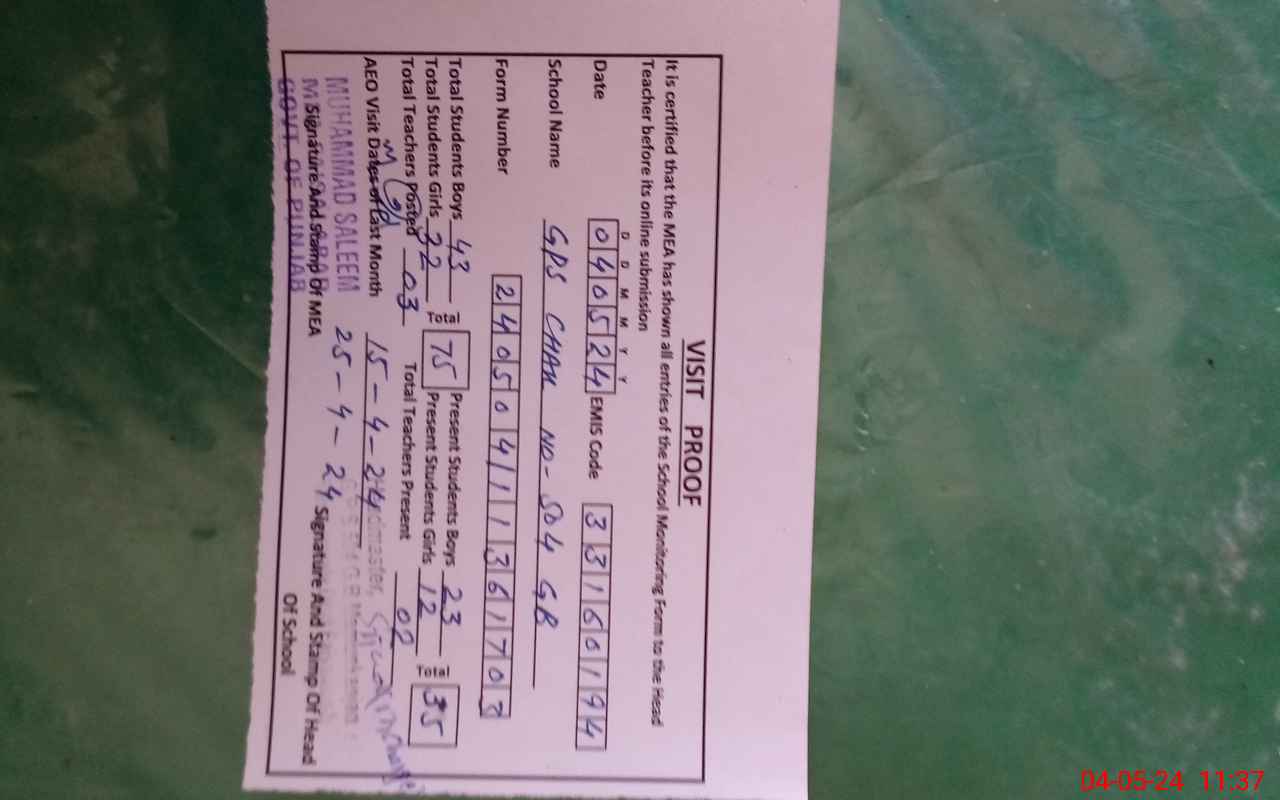 VISIT PROOF
It is certified that the MEA has shown all entries of the School Monitoring Form to the Head
Teacher before its online submission
D D M M Y Y
Date 040524 EMIS Code 33160194
School Name GPS CHAK NO- 504 GB
Form Number 240504111361703
Total Students Boys 43 Total 75 Present Students Boys 23 Total 35
Total Students Girls 32 Present Students Girls 12
Total Teachers Posted 03 Total Teachers Present 02
AEO Visit Dates of Last Month 15-4-24
25-4-24
MUHAMMAD SALEEM
GOVT. OF PUNJAB
Signature And Stamp Of MEA
Signature And Stamp Of Head
Of School
04-05-24 11:37